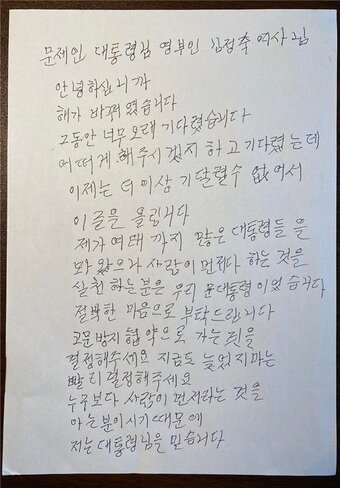 문제인 대통령님 영부인 김정숙 여사님
안녕하십니까
해가 바뀌 였습니다
그동안 너무 오래 기다렸습니다
어떠게 해 주시 겠지 하고 기다렸는데
이제는 더 이상 기달릴수 없어서
이 글을 올립니다
제가 여태 까지 많은 대통령들을
봐 왔으나 사람이 먼저다 하는 것을
실천 하는 분은 우리 문대통령 이었 습니다
절박한 마음으로 부탁드립니다
고문방지 협 약으로 가는 것을
결정해주세요 지금도 늦었지마는
빨리 결정해주세요
누구보다 사람이 먼저라는 것을
아는 분이시기 때문에
저는 대통령님을 믿습니다